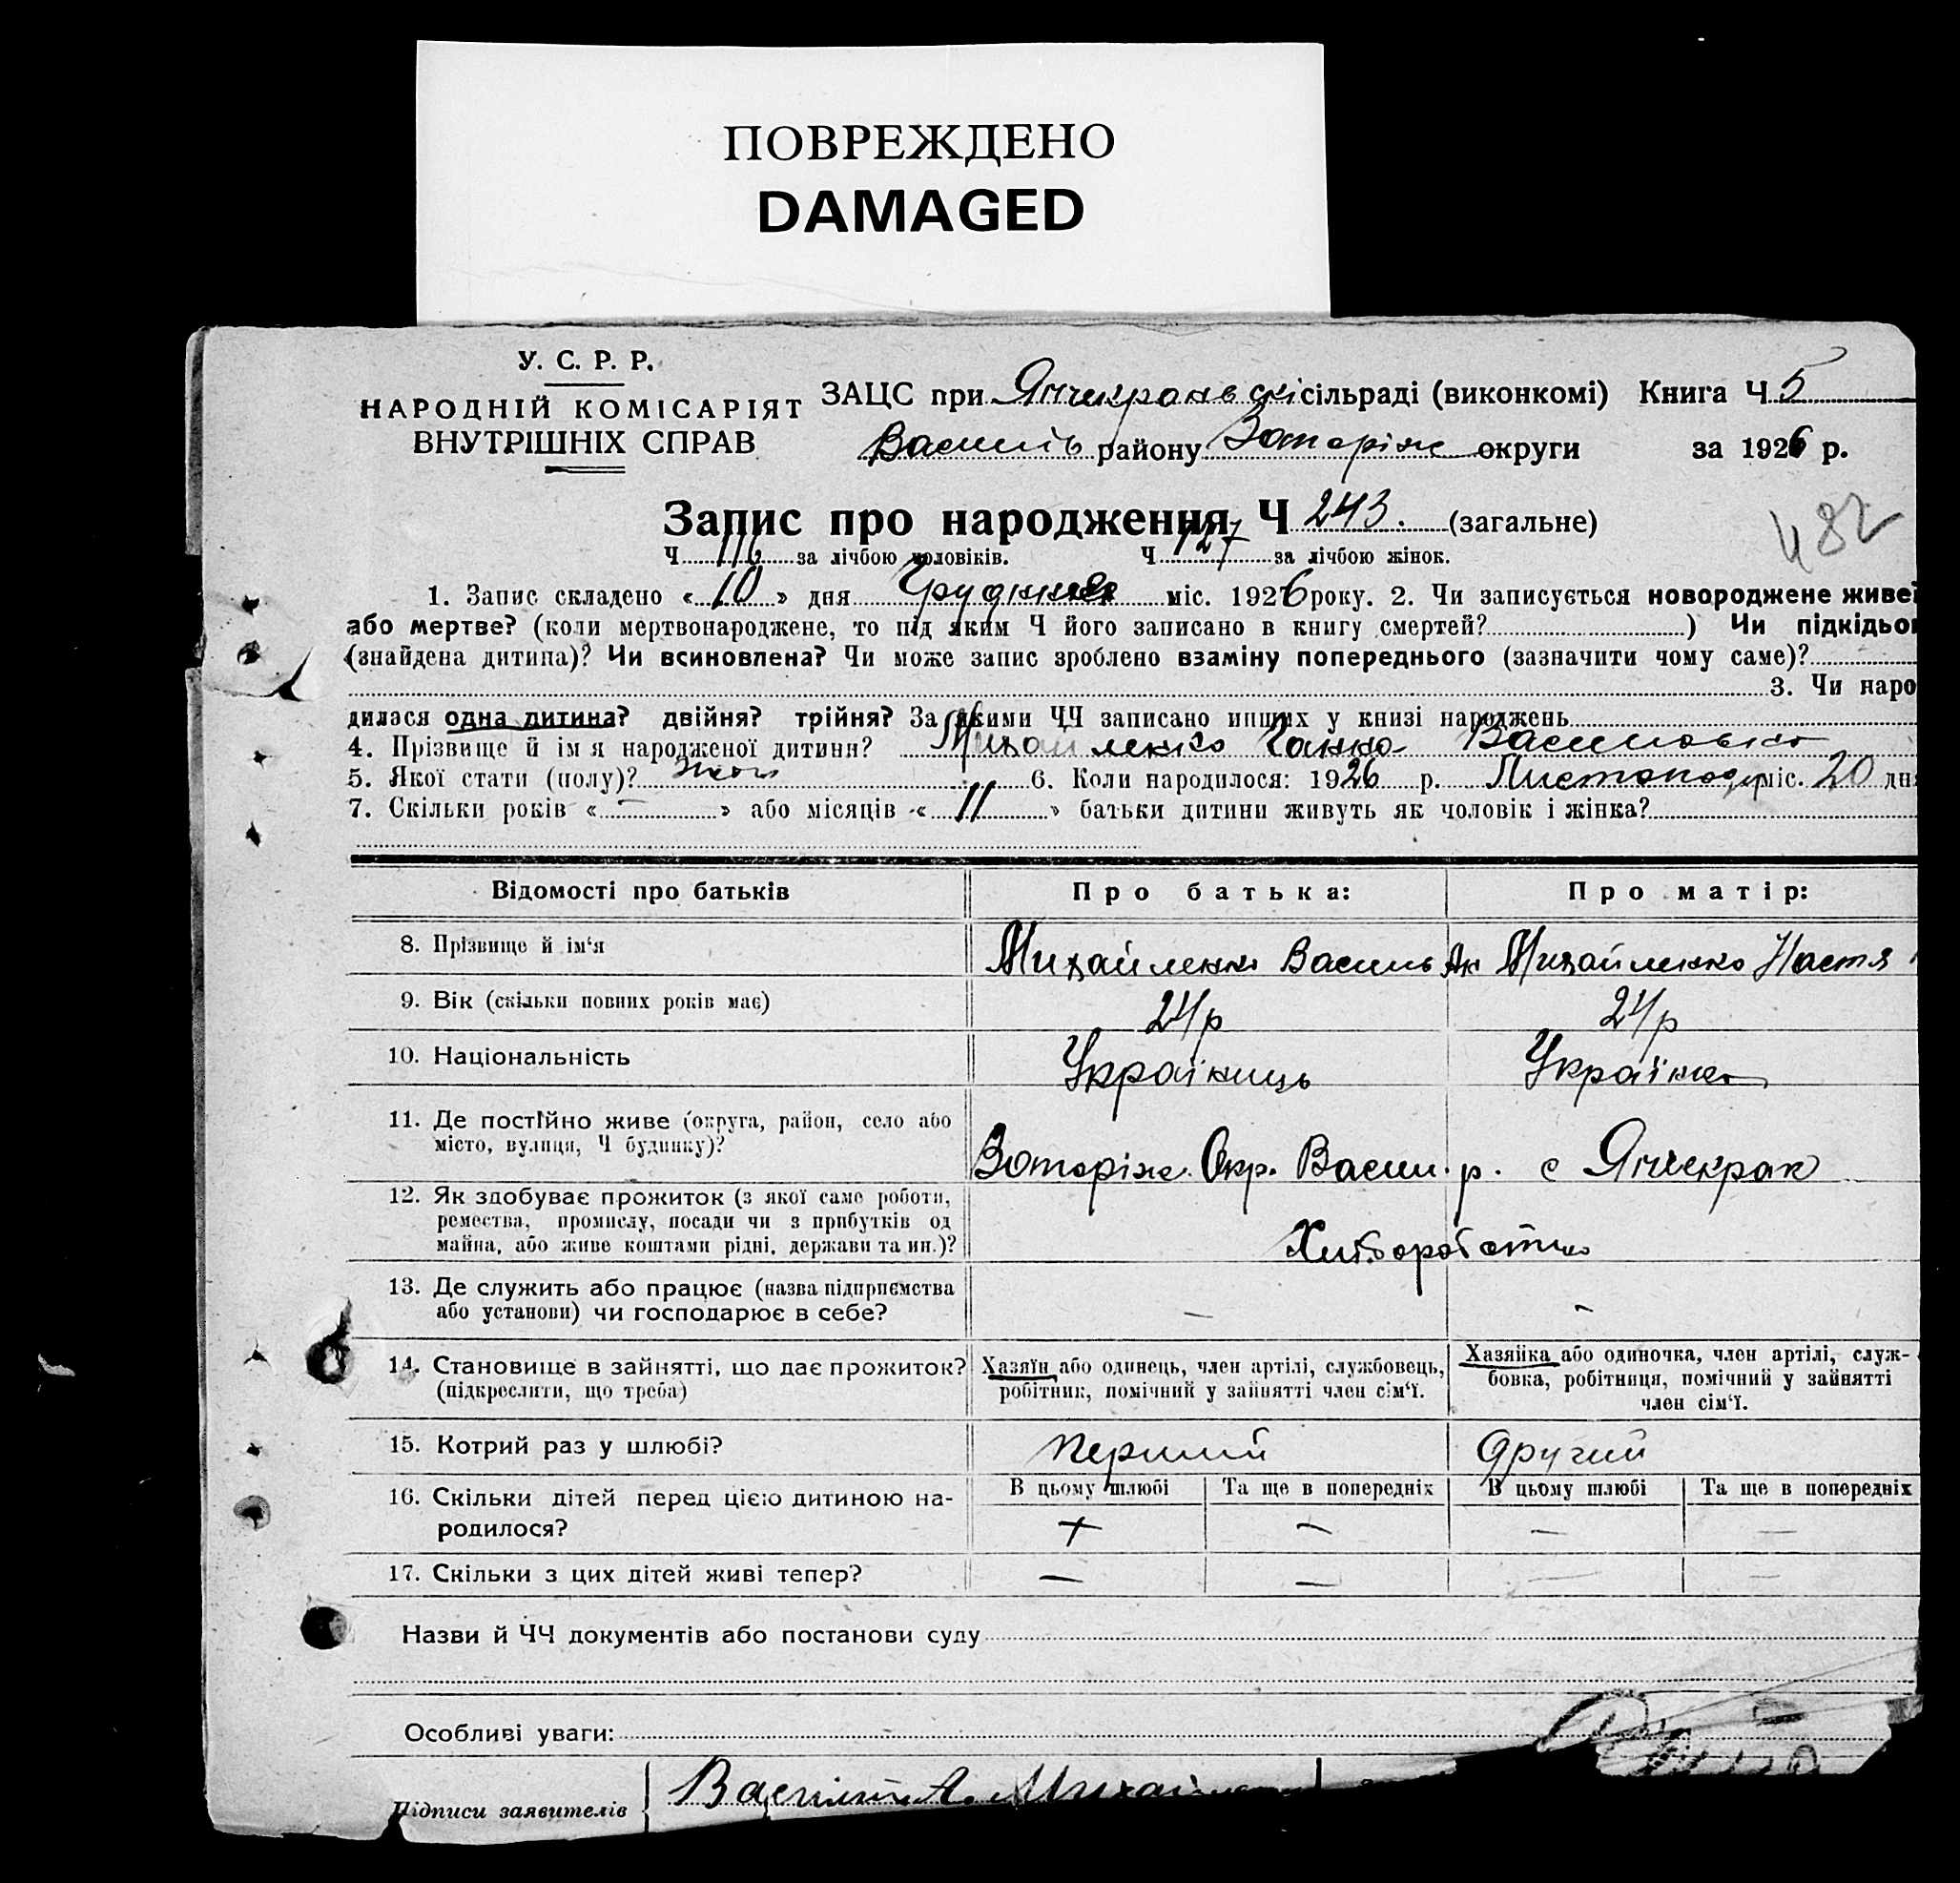 ПОВРЕЖДЕНО
DAMAGED
У. С. Р. Р.
НАРОДНІЙ КОМІСАРІЯТ
ВНУТРІШНІХ СПРАВ
ЗАЦС при Янчекраньскі сільраді (виконкомі) Книга Ч 5
Василь району Запоріж округи за 1926 р.
Запис про народження Ч 243. (загальне)
482
Ч 116 за лічбою чоловіків. Ч 127 за лічбою жінок.
1. Запис складено « 10 » дня Грудния міс. 1926 року. 2. Чи записується новороджене живе
або мертве? (коли мертвонароджене, то під яким Ч його записано в книгу смертей? ) Чи підкідьо
(знайдена дитина)? Чи всиновлена? Чи може запис зроблено взаміну попереднього (зазначити чому саме)?
3. Чи наро
дилася одна дитина? двійня? трійня? За якими ЧЧ записано инших у книзі народжень
4. Прізвище й ім'я народженої дитини? Михайленко Ганна Василовна
5. Якої стати (полу)? жон 6. Коли народилося: 1926 р. Листопад міс. 20 дня
7. Скільки років « — » або місяців « 11 » батьки дитини живуть як чоловік і жінка?
Відомості про батьків Про батька: Про матір:
8. Прізвище й ім'я Михайленко Василь Ак Михайленко Настя
9. Вік (скільки повних років має) 24р 24р
10. Національність Українець Українка
11. Де постійно живе (округа, район, село або
місто, вулиця, Ч будинку)? Запоріж. Окр. Васил. р. с Янчекрак
12. Як здобуває прожиток (з якої саме роботи,
ремества, промислу, посади чи з прибутків од
майна, або живе коштами рідні, держави та ин.)? Хліборобство
13. Де служить або працює (назва підприємства
або установи) чи господарює в себе? — -
14. Становище в зайнятті, що дає прожиток? Хазяїн або одинець, член артілі, службовець, Хазяйка або одиночка, член артілі, служ-
(підкреслити, що треба) робітник, помічний у зайнятті член сім'ї. бовка, робітниця, помічний у зайнятті
член сім'ї.
15. Котрий раз у шлюбі? перший другий
16. Скільки дітей перед цією дитиною на- В цьому шлюбі Та ще в попередніх В цьому шлюбі Та ще в попередніх
родилося? + — — —
17. Скільки з цих дітей живі тепер? — — — —
Назви й ЧЧ документів або постанови суду
Особливі уваги:
Підписи заявителів